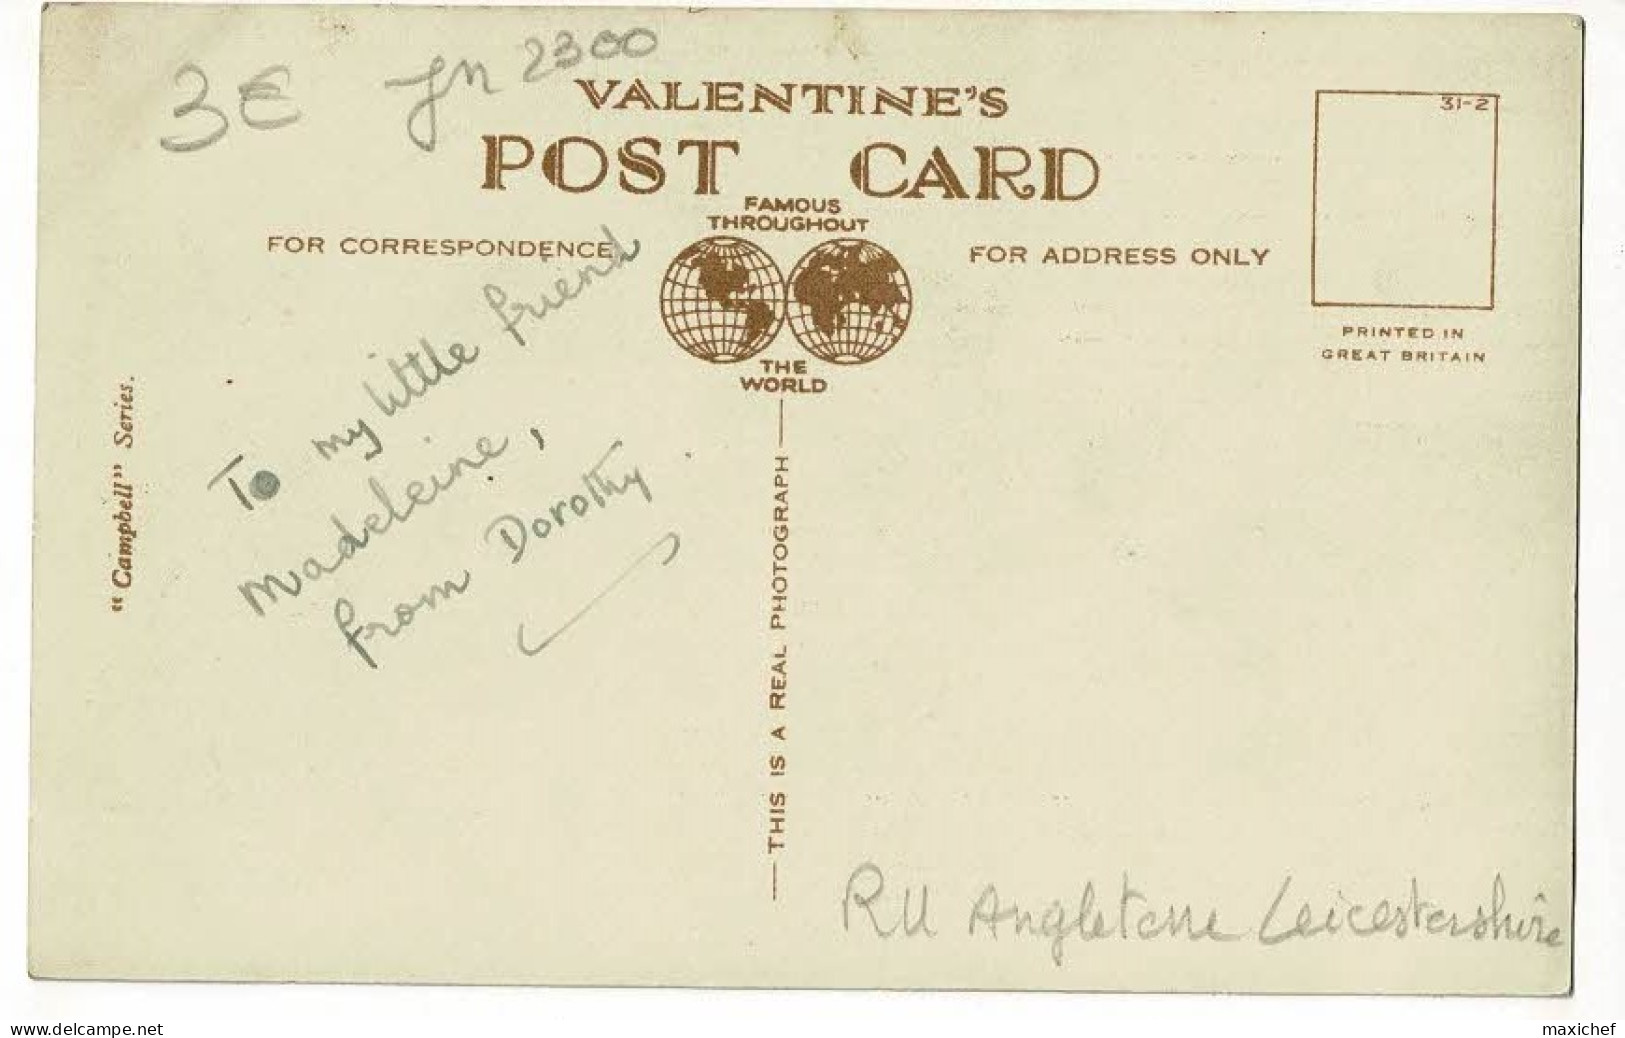 3€ Jn 2300
VALENTINE'S
POST CARD
31-2
FAMOUS
THROUGHOUT
THE
WORLD
FOR CORRESPONDENCE
FOR ADDRESS ONLY
PRINTED IN
GREAT BRITAIN
"Campbell" Series.
To my little friend
Madeleine,
from Dorothy
THIS IS A REAL PHOTOGRAPH
RU Angleterre Leicestershire
www.delcampe.net
maxichef